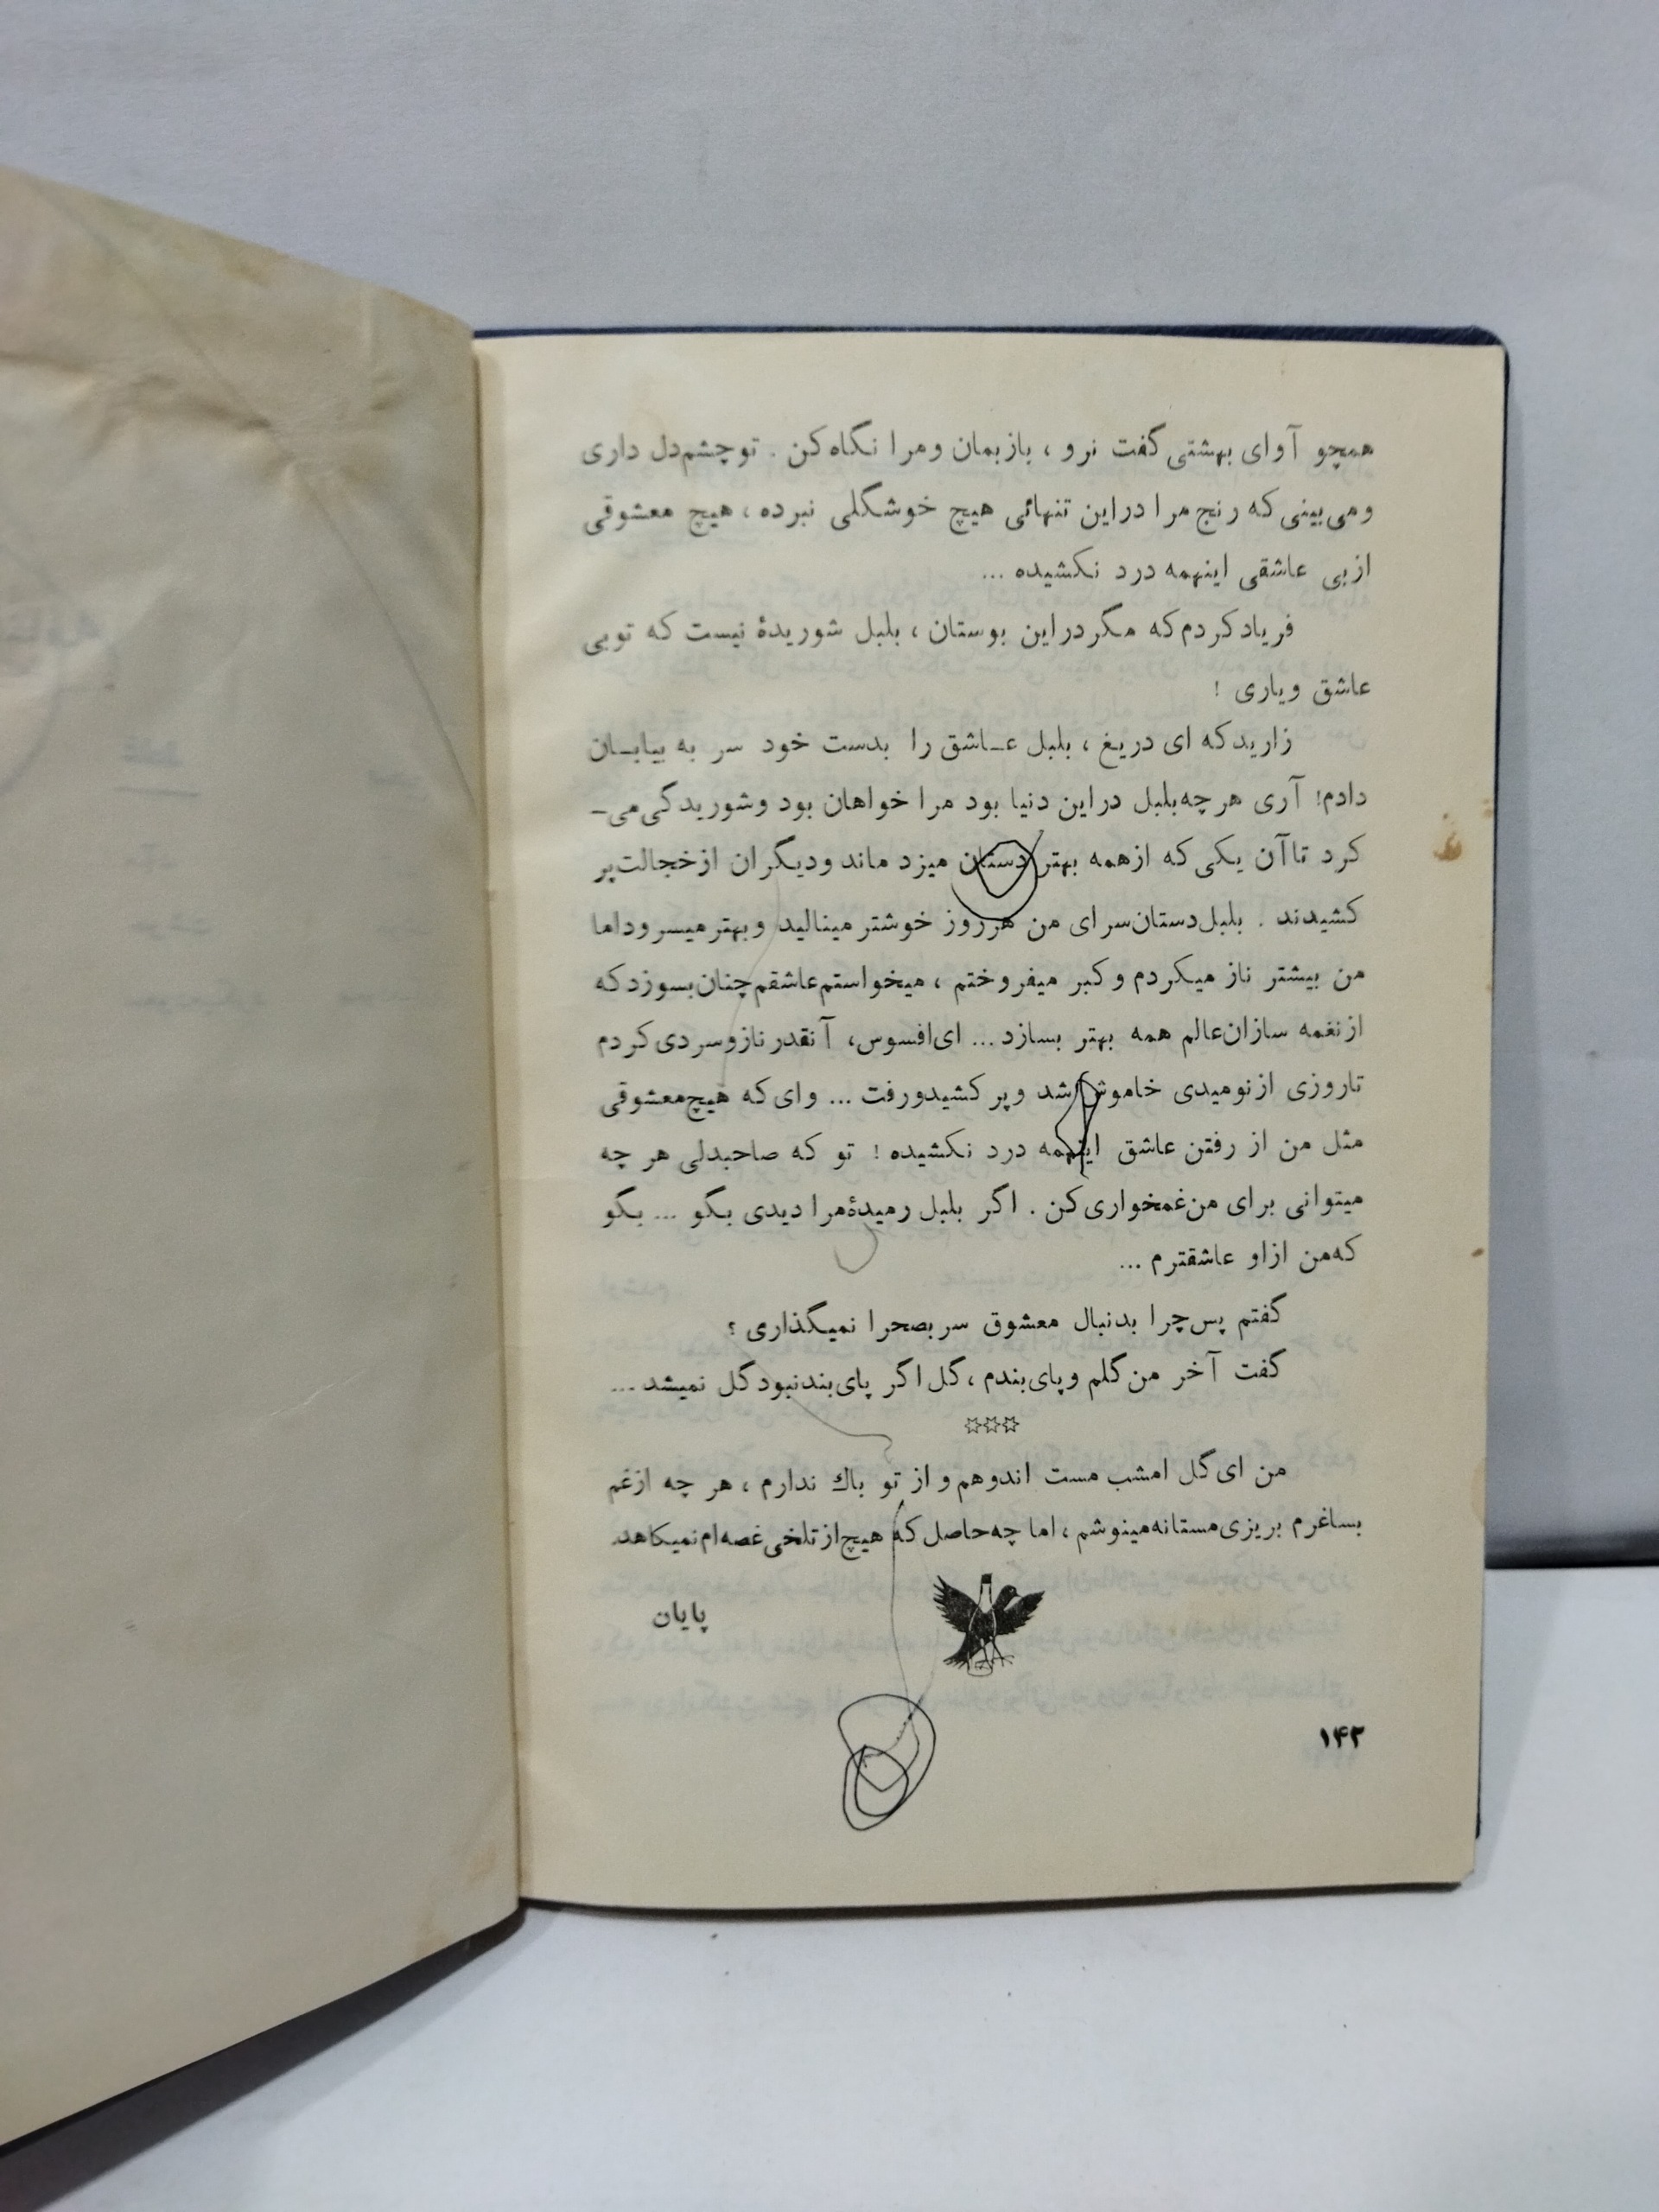 همچو آوای بهشتی گفت نرو ، باز بمان و مرا نگاه کن . تو چشم دل داری
و می بینی که رنج مرا در این تنهائی هیچ خوشگلی نبرده ، هیچ معشوقی
از بی عاشقی اینهمه درد نکشیده ...
فریاد کردم که مگر در این بوستان ، بلبل شوریدهٔ نیست که تو بی
عاشق و یاری !
زارید که ای دریغ ، بلبل عـاشق را بدست خود سر به بیابـان
دادم! آری هر چه بلبل در این دنیا بود مرا خواهان بود و شوریدگی می-
کرد تا آن یکی که از همه بهتر دستان میزد ماند و دیگران از خجالت پر
کشیدند . بلبل دستان سرای من هر روز خوشتر مینالید و بهتر میسرود اما
من بیشتر ناز میکردم و کبر میفروختم ، میخواستم عاشقم چنان بسوزد که
از نغمه سازان عالم همه بهتر بسازد ... ای افسوس، آنقدر ناز و سردی کردم
تا روزی از نومیدی خاموش شد و پر کشید و رفت ... وای که هیچ معشوقی
مثل من از رفتن عاشق اینهمه درد نکشیده ! تو که صاحبدلی هر چه
میتوانی برای من غمخواری کن . اگر بلبل رمیدهٔ مرا دیدی بگو ... بگو
که من از او عاشقترم ...
گفتم پس چرا بدنبال معشوق سر بصحرا نمیگذاری ؟
گفت آخر من گلم و پای بندم ، گل اگر پای بند نبود گل نمیشد ...
☆☆☆
من ای گل امشب مست اندوهم و از تو باك ندارم ، هر چه از غم
بساغرم بریزی مستانه مینوشم ، اما چه حاصل که هیچ از تلخی غصه ام نمیکاهد.
پایان
۱۴۲